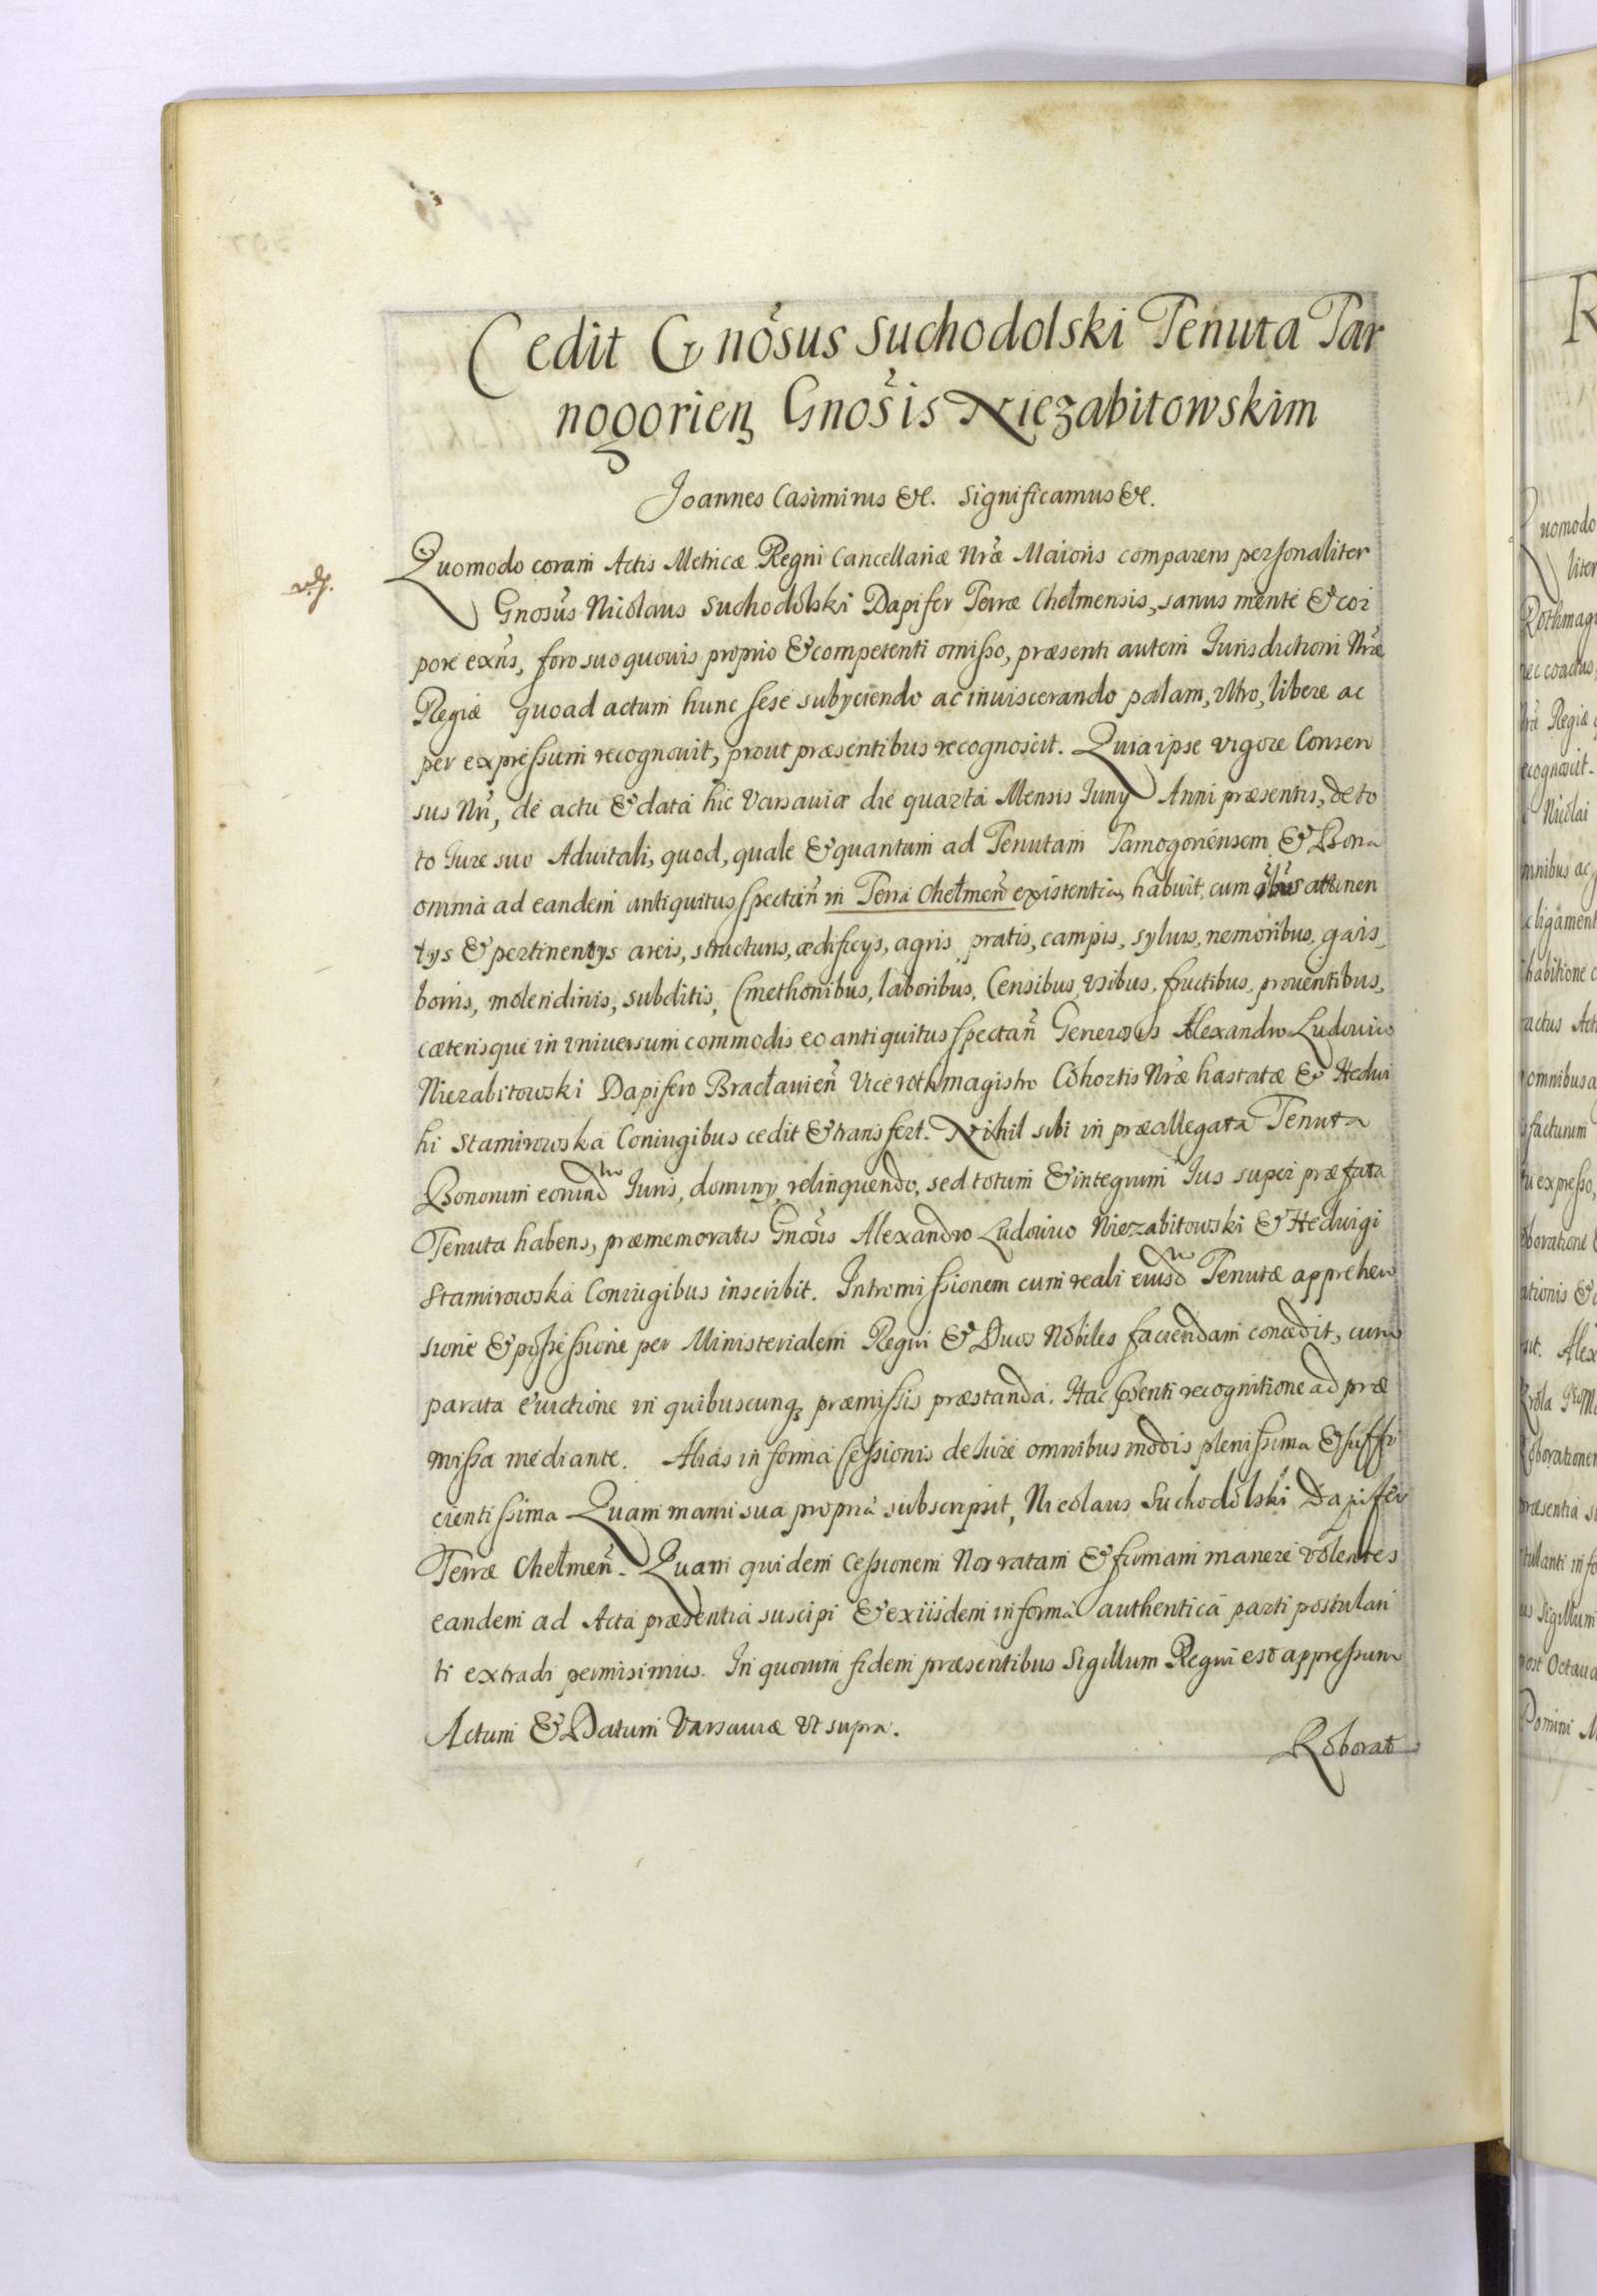 Cedit Gnõsus Suchodolski Tenuta Tar
nogorien Gnõsis Niezabitowskim
Joannes Casimirus &c. Significamus &c.
Quomodo coram Actis Metricæ Regni Cancellariæ Nræ Maioris comparens personaliter
Gnosus Nicolaus Suchodolski Dapifer Terræ Chełmensis, sanus mente & cor
pore exñs, foro suo quouis proprio & competenti omisso, præsenti autem Jurisdictioni Nræ
Regiæ quoad actum hunc sese subyciendo ac inuiscerando palam, vltro, libere ac
per expressum recognouit, prout præsentibus recognoscit. Quia ipse vigore Consen
sus Nri, de actu & data hic Varsauiæ die quarta Mensis Juny Anni præsentis, de to
to Jure suo Aduitali, quod, quale & quantum ad Tenutam Tarnogoriensem & Bona
omnia ad eandem antiquitus spectañ in Terra Chełmeñ existentia habuit, cum oĩbus attinen
tys & pertinentys areis, structuris, ædificys, agris, pratis, campis, syluis, nemoribus, gais,
borris, molendinis, subditis, Cmethonibus, laboribus, Censibus, vsibus, fructibus, prouentibus,
cæterisque in vniuersum commodis eo antiquitus spectañ Generosis Alexandro Ludouico
Niezabitowski Dapifero Bracłauieñ Vice rothmagistro Cohortis Nræ hastatæ & Hedui
hi Stamirowska Coniugibus cedit & transfert. Nihil sibi in præallegata Tenuta
Bonorum eorund Juris, dominy, relinquendo, sed totum & integrum Jus super præfata
Tenuta habens, præmemoratis Gnosis Alexandro Ludouico Niezabitowski & Heduigi
Stamirowska Coniugibus inscribit. Intromissionem cum reali eiusd Tenutæ apprehen
sione & possessione per Ministerialem Regni & Duos Nobiles faciendam concedit, cum
parata euictione in quibuscunq præmissis præstanda. Hac psenti recognitione ad præ
missa mediante. Alias in forma cessionis de Jure omnibus modis plenissima & suffi
cientissima Quam manu sua propria subscripsit, Nicolaus Suchodolski Dapifer
Terræ Chełmeñ. Quam quidem Cessionem Nos ratam & firmam manere volentes
eandem ad Acta præsentia suscipi & ex iisdem in forma authentica parti postulan
ti extradi permisimus. In quorum fidem præsentibus Sigillum Regni est appressum
Actum & Datum Varsauiæ Vt supra.
Roborat